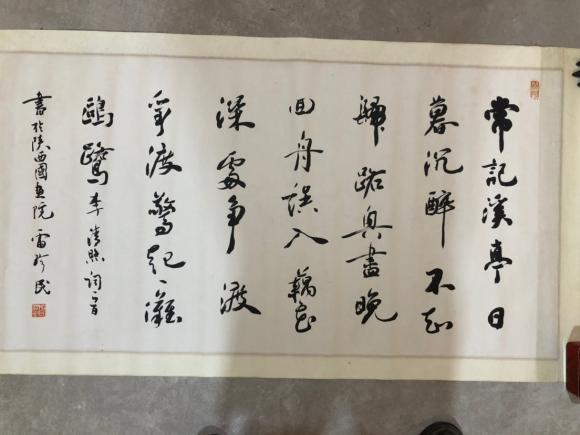 常記溪亭日
暮沉醉不知
歸路興盡晚
回舟誤入藕花
深處争渡
争渡驚起一灘
鷗鷺李清照詞一首
書於陝西國畫院雷珍民